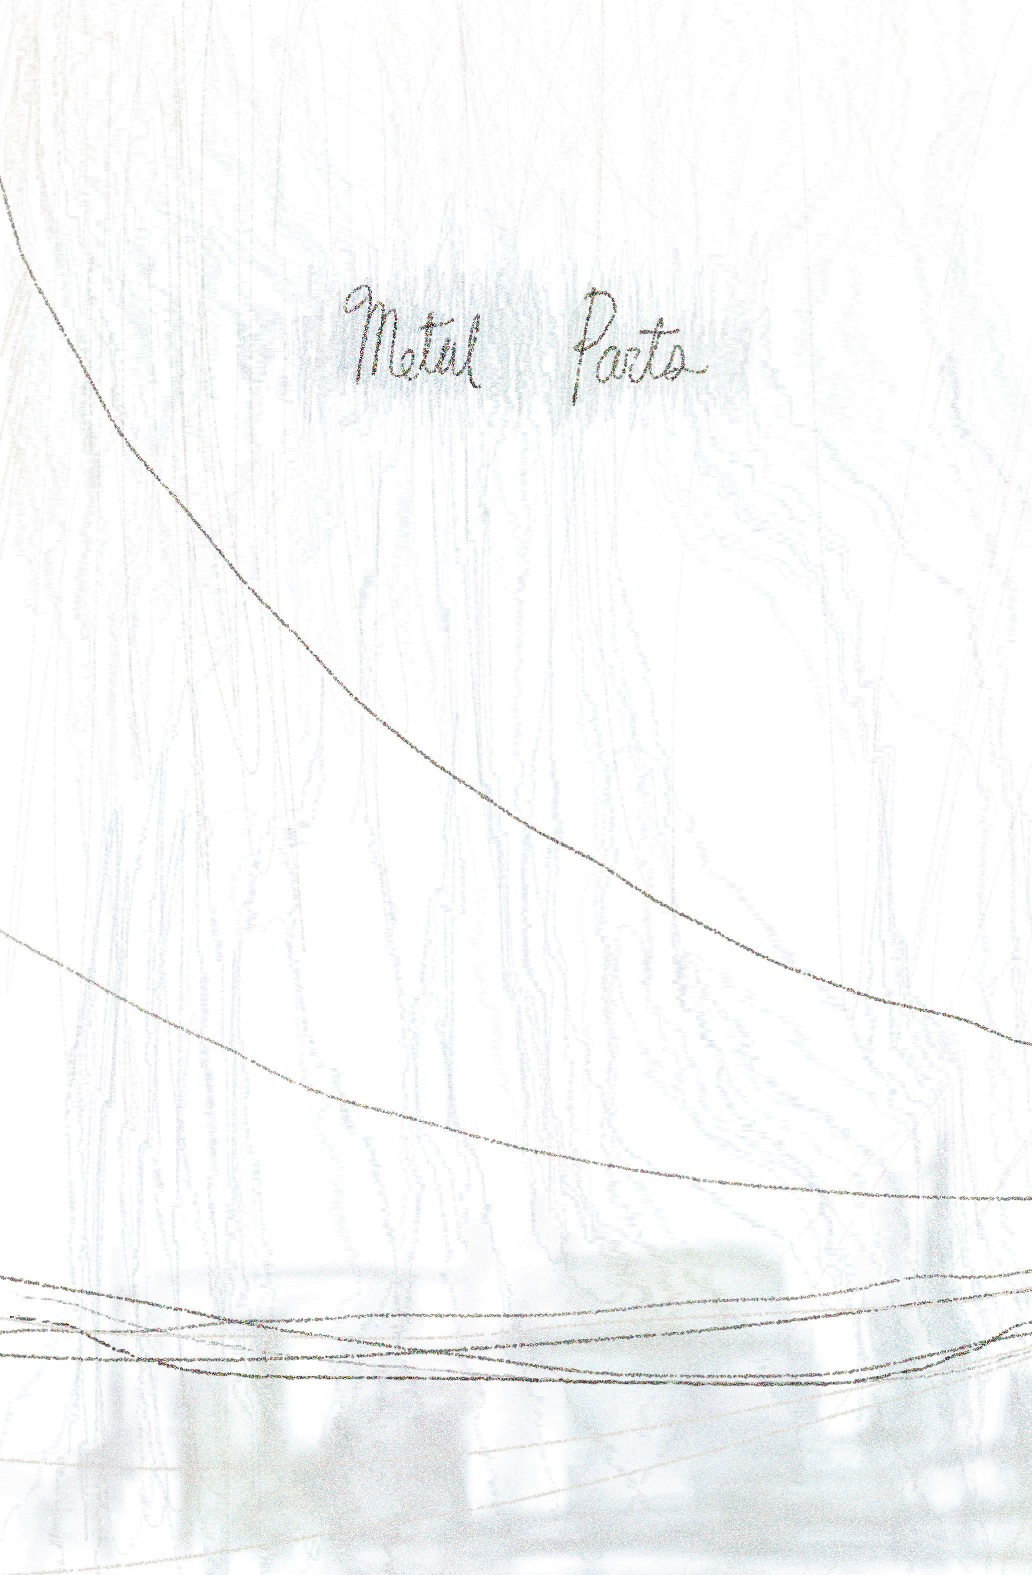 Metal Parts